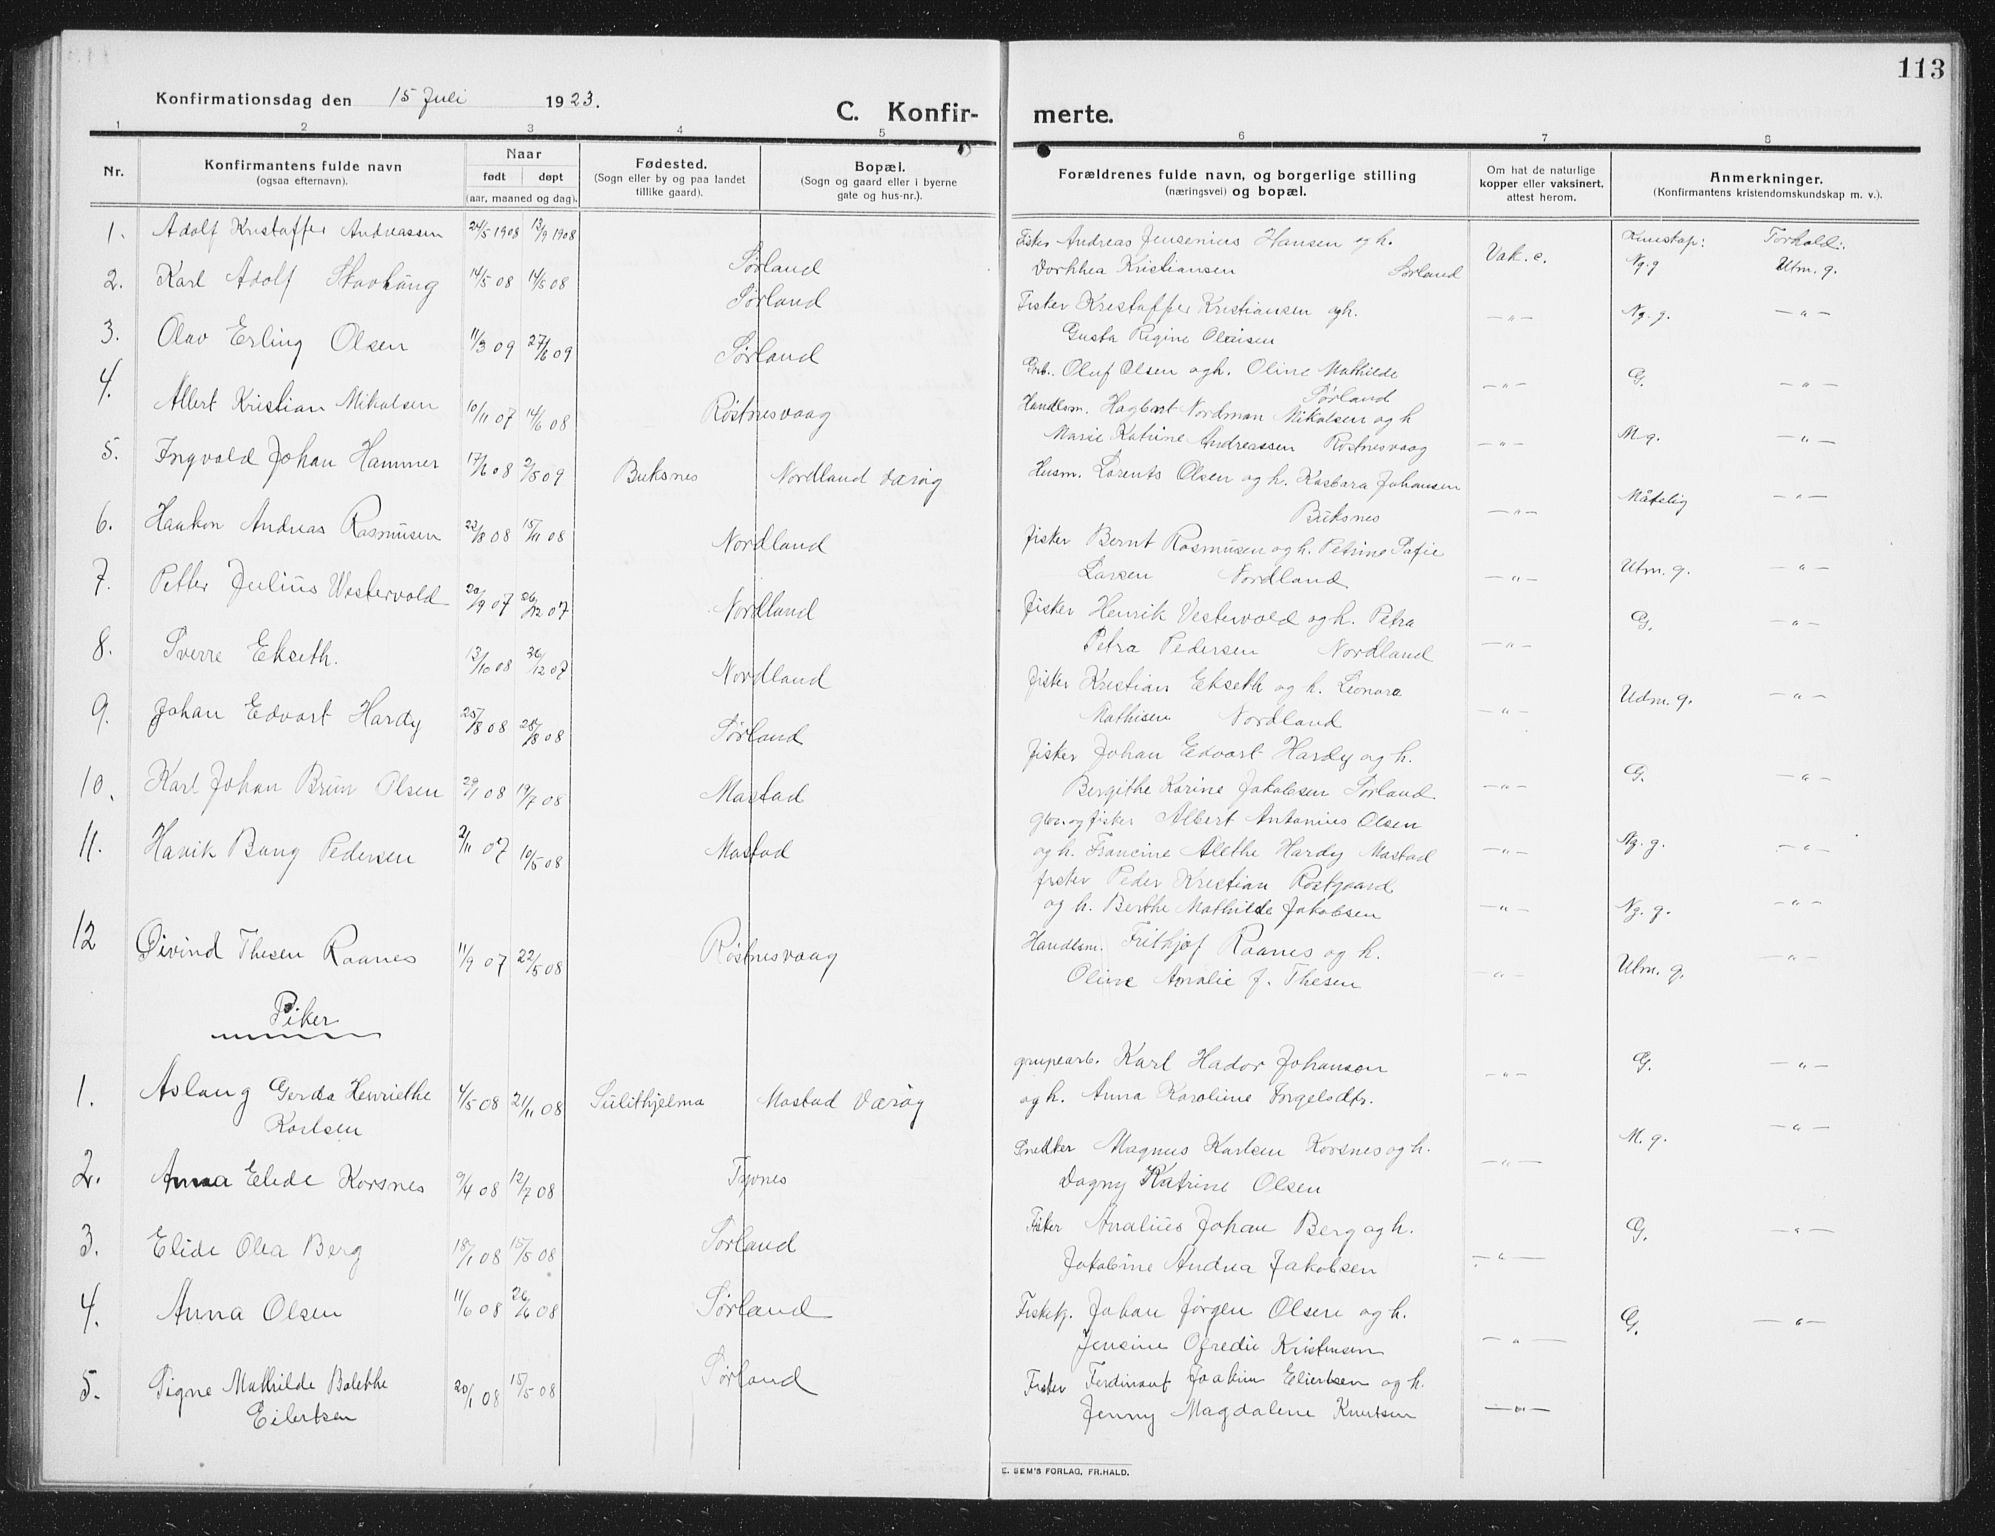 113
Konfirmationsdag den 15 Juli 1923.
C. Konfir- merte.
1 2 3 4 5 6 7 8
Nr.
Konfirmantens fulde navn
(ogsaa efternavn).
Naar
født døpt
(aar, maaned og dag).
Fødested.
(Sogn eller by og paa landet
tillike gaard).
Bopæl.
(Sogn og gaard eller i byerne
gate og hus-nr.).
Forældrenes fulde navn, og borgerlige stilling
(næringsvei) og bopæl.
Om hat de naturlige
kopper eller vaksinert,
attest herom.
Anmerkninger.
(Konfirmantens kristendomskundskap m. v.).
Kunskap: Forhold:
1. Adolf Kristoffer Andreassen 24/5 1908 13/9 1908 Sørland
Fisker Andreas Jensenius Hansen og h. Vak. e.
Dorthea Kristiansen Sørland Ng. g Utm. g.
2. Karl Adolf Stavhaug 14/5 08 14/6 08 Sørland
Fisker Kristoffer Kristiansen og h. — " — Ng. g. — " —
Gusta Regine Olaisen
3. Olav Erling Olsen 11/3 09 27/6 09 Sørland
Oluf Olsen og h. Oline Mathilde — " — G. — " —
Sørland
4. Albert Kristian Mikalsen 10/11 07 14/6 08 Røstnesvaag
Handlsm. Hagbart Nordman Nikolsen og h
Marie Katrine Andreassen Røstnesvaag — " — M g. — " —
5. Ingvald Johan Hammer 17/6 08 2/5 09 Buksnes Nordland Værøy
Husm. Lorents Olsen og h. Kasbara Johansen
Buksnes — " — Måtelig — " —
6. Haakon Andreas Rasmusen 23/8 08 15/11 08 Nordland
fisker Bernt Rasmusen og h. Petrine Sofie
Larsen Nordland — " — Utm. g. — " —
7. Petter Julius Westervold 20/9 07 26/12 07 Nordland
fisker Henrik Vestervold og h. Petra
Petra Pedersen Nordland — " — G. — " —
8. Sverre Ekseth. 13/10 08 26/12 07 Nordland
fisker Kristian Ekseth og h. Leonora
Mathisen Nordland — " — Udm. g. — " —
9. Johan Edvart Hardy 25/8 08 28/8 08 Sørland
fisker Johan Edvart Hardy og h.
Bergithe Karine Jakobsen Sørland. — " — G. — " —
10. Karl Johan Brun Olsen 29/1 08 19/7 08 Mastad
og fisker Albert Antonius Olsen
og h. Francine Alethe Hardy Mastad — " — Ng. g. — " —
11. Havik Bang Pedersen 2/11 07 10/5 08 Mastad
fisker Peder Kristian Rostgaard
og h. Berthe Mathilde Jakobsen — " — Ng. g. — " —
12 Øivind Thesen Raanes 11/9 07 22/5 08 Røstnesvaag
Handlsm. Frithjof Raanes og h.
Olive Amalie f. Thesen — " — Utm. g. — " —
Piker
1. Aslaug Gerda Henriethe 4/5 08 21/11 08 Sulithjelma Mastad Værøy
Karlsen
grupearb. Karl Hador Johanson — " — G. — " —
og h. Anna Karoline Torgelsdtr.
2. Anna Elide Korsnes 9/4 08 12/7 08 Tyvnes
Snedker Magnus Karlsen Korsnes og h. — " — M. g. — " —
Dagny Katrine Olsen
3. Elide Olea Berg 18/1 08 15/5 08 Sørland
Fisker Analius Johan Berg og h. G. — " —
Jakobine Andrea Jakobsen — " —
4. Anna Olsen 11/6 08 26/6 08 Sørland
Fiskekj. Johan Jørgen Olsen og h. G. — " —
Jensine Ofredie Kristensen — " —
5. Signe Mathilde Bolethe 20/1 08 15/5 08 Sørland
Eilertsen
Fisker Ferdinant Joakim Eliertsen og h.
Jenny Magdalene Knutsen — " —
E. SEM'S FORLAG, FR.HALD.